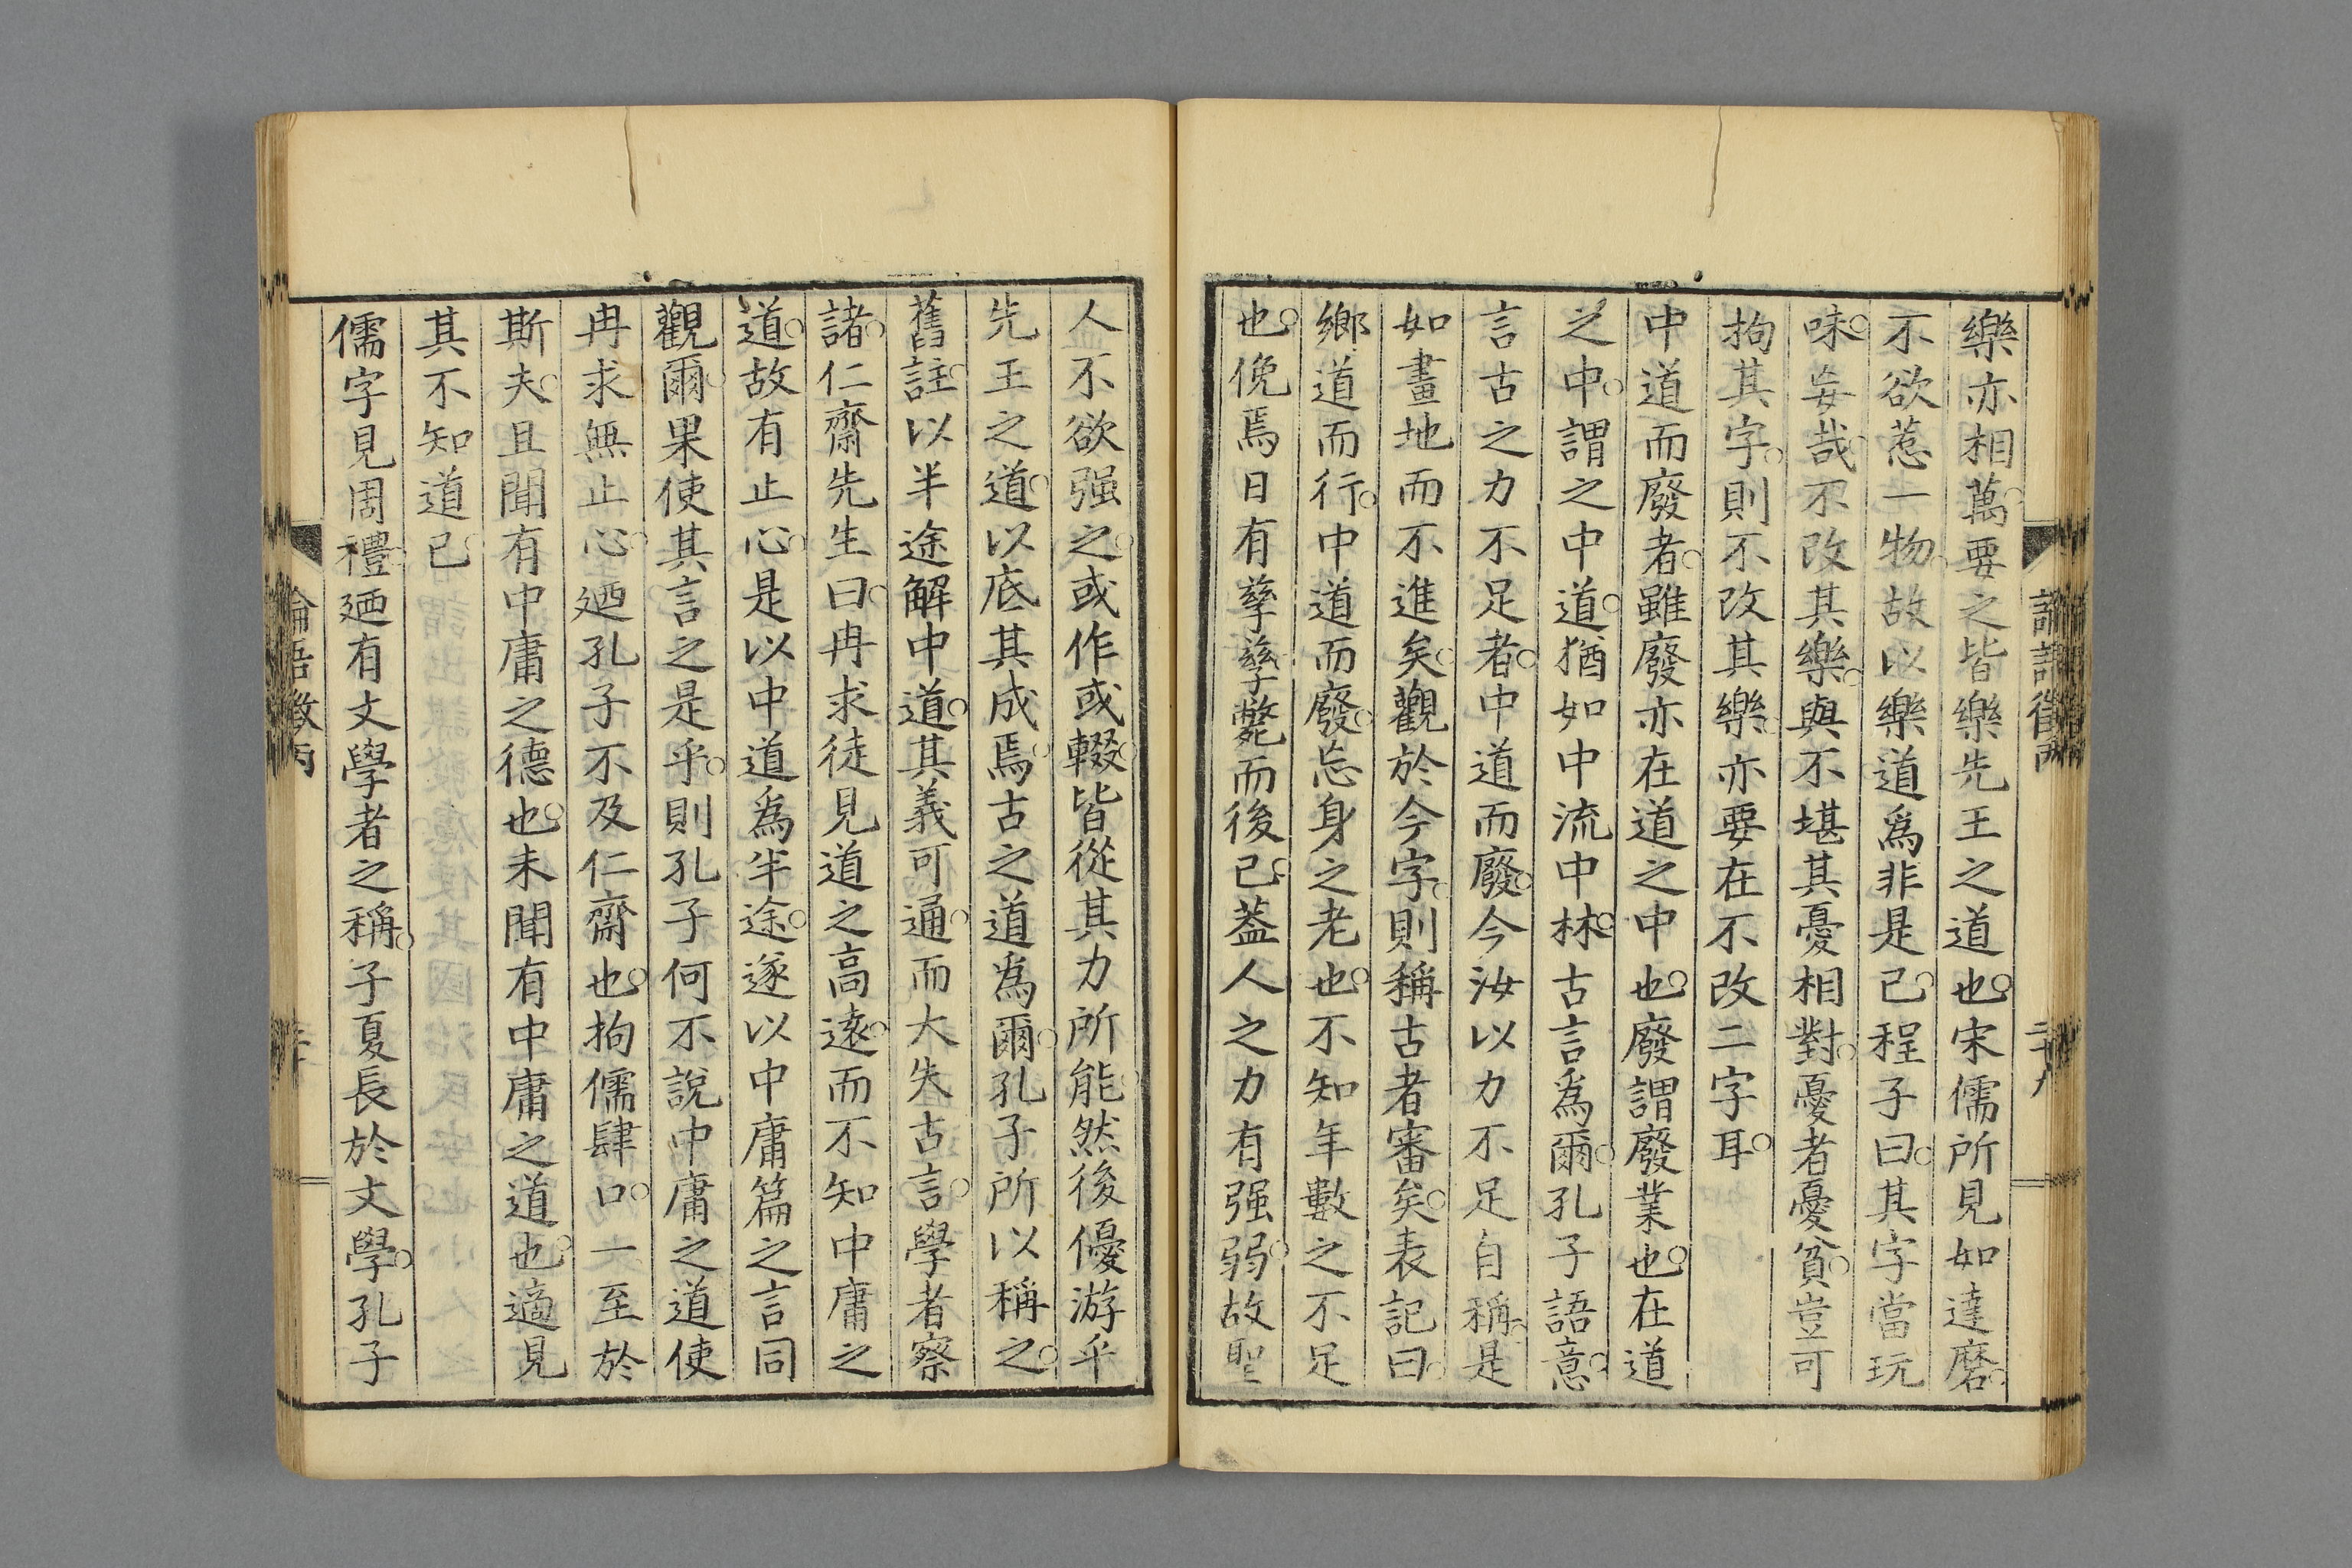 樂亦相萬要之皆樂先王之道也宋儒所見如達磨
不欲惹一物故以樂道爲非是已程子曰其字當玩
味妄哉不改其樂與不堪其憂相對憂者憂貧豈可
拘其字則不改其樂亦要在不改二字耳
中道而廢者雖廢亦在道之中也廢謂廢業也在道
之中謂之中道猶如中流中林古言爲爾孔子語意
言古之力不足者中道而廢今汝以力不足自稱是
如畫地而不進矣觀於今字則稱古者審矣表記曰
鄉道而行中道而廢忘身之老也不知年數之不足
也俛焉日有孳孳斃而後已蓋人之力有强弱故聖
人不欲强之或作或輟皆從其力所能然後優游乎
先王之道以底其成焉古之道爲爾孔子所以稱之
舊註以半途解中道其義可通而大失古言學者察
諸仁齋先生曰冉求徒見道之高遠而不知中庸之
道故有止心是以中道爲半途遂以中庸篇之言同
觀爾果使其言之是乎則孔子何不說中庸之道使
冉求無止心廼孔子不及仁齋也拘儒肆口一至於
斯夫且聞有中庸之德也未聞有中庸之道也適見
其不知道已
儒字見周禮廼有文學者之稱子夏長於文學孔子
論語徵丙